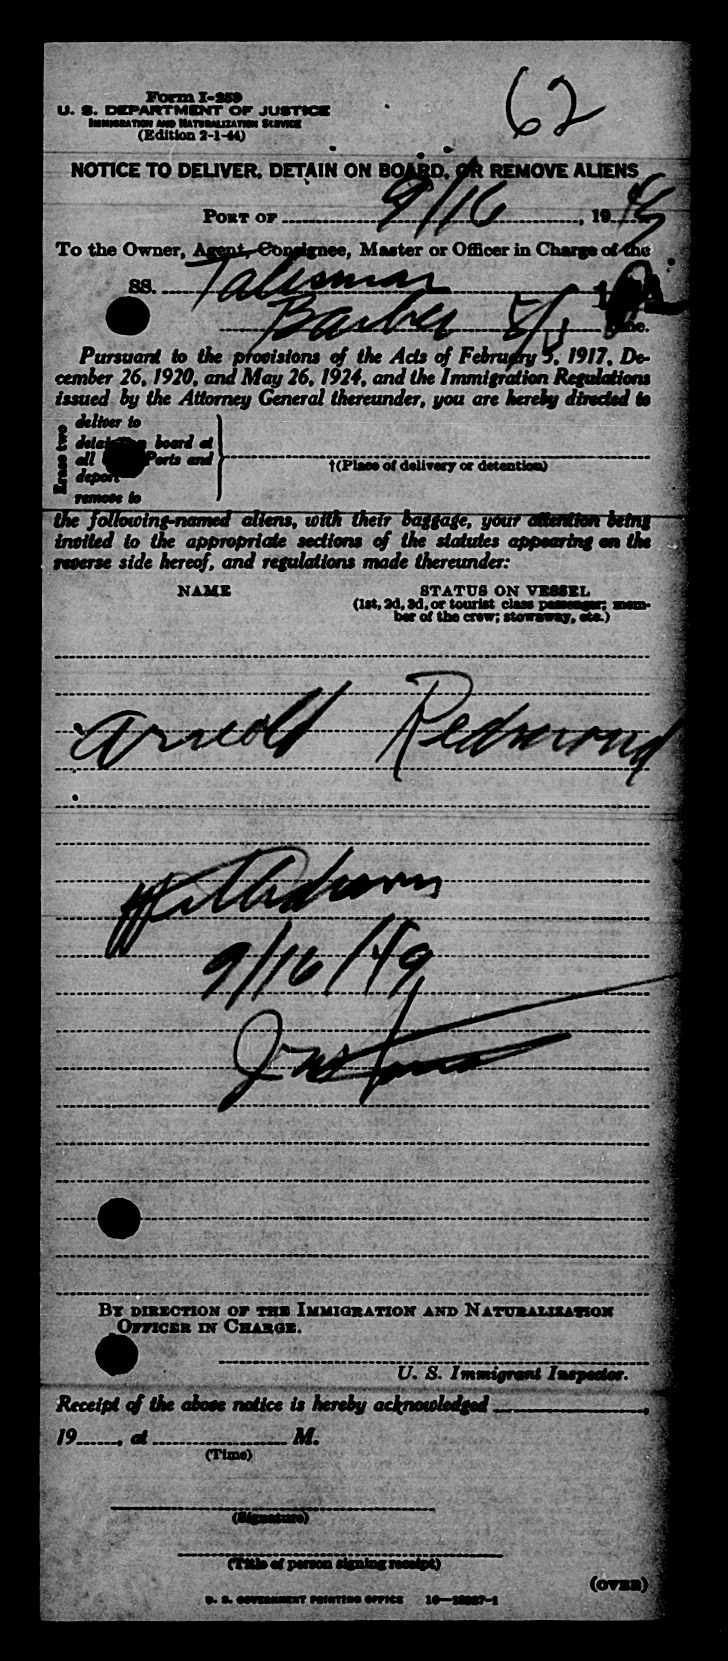 62
Form I-259
U. S. DEPARTMENT OF JUSTICE
IMMIGRATION AND NATURALIZATION SERVICE
(Edition 2-1-44)
NOTICE TO DELIVER, DETAIN ON BOARD, OR REMOVE ALIENS
PORT OF 9/16, 19
To the Owner, Agent, Consignee, Master or Officer in Charge of the
SS. Talisman
Barber
Pursuant to the provisions of the Acts of February 5, 1917, De-
cember 26, 1920, and May 26, 1924, and the Immigration Regulations
issued by the Attorney General thereunder, you are hereby directed to
Erase two
deliver to
detain on board at
all Ports and
deport
remove to
†(Place of delivery or detention)
the following-named aliens, with their baggage, your attention being
invited to the appropriate sections of the statutes appearing on the
reverse side hereof, and regulations made thereunder:
NAME STATUS ON VESSEL
(1st, 2d, 3d, or tourist class passenger; mem-
ber of the crew; stowaway, etc.)
Arnold Redmond
Withdrawn
9/16/49
BY DIRECTION OF THE IMMIGRATION AND NATURALIZATION
OFFICER IN CHARGE.
U. S. Immigrant Inspector.
Receipt of the above notice is hereby acknowledged,
19, at M.
(Time)
(Signature)
(Title of person signing receipt)
(OVER)
U. S. GOVERNMENT PRINTING OFFICE